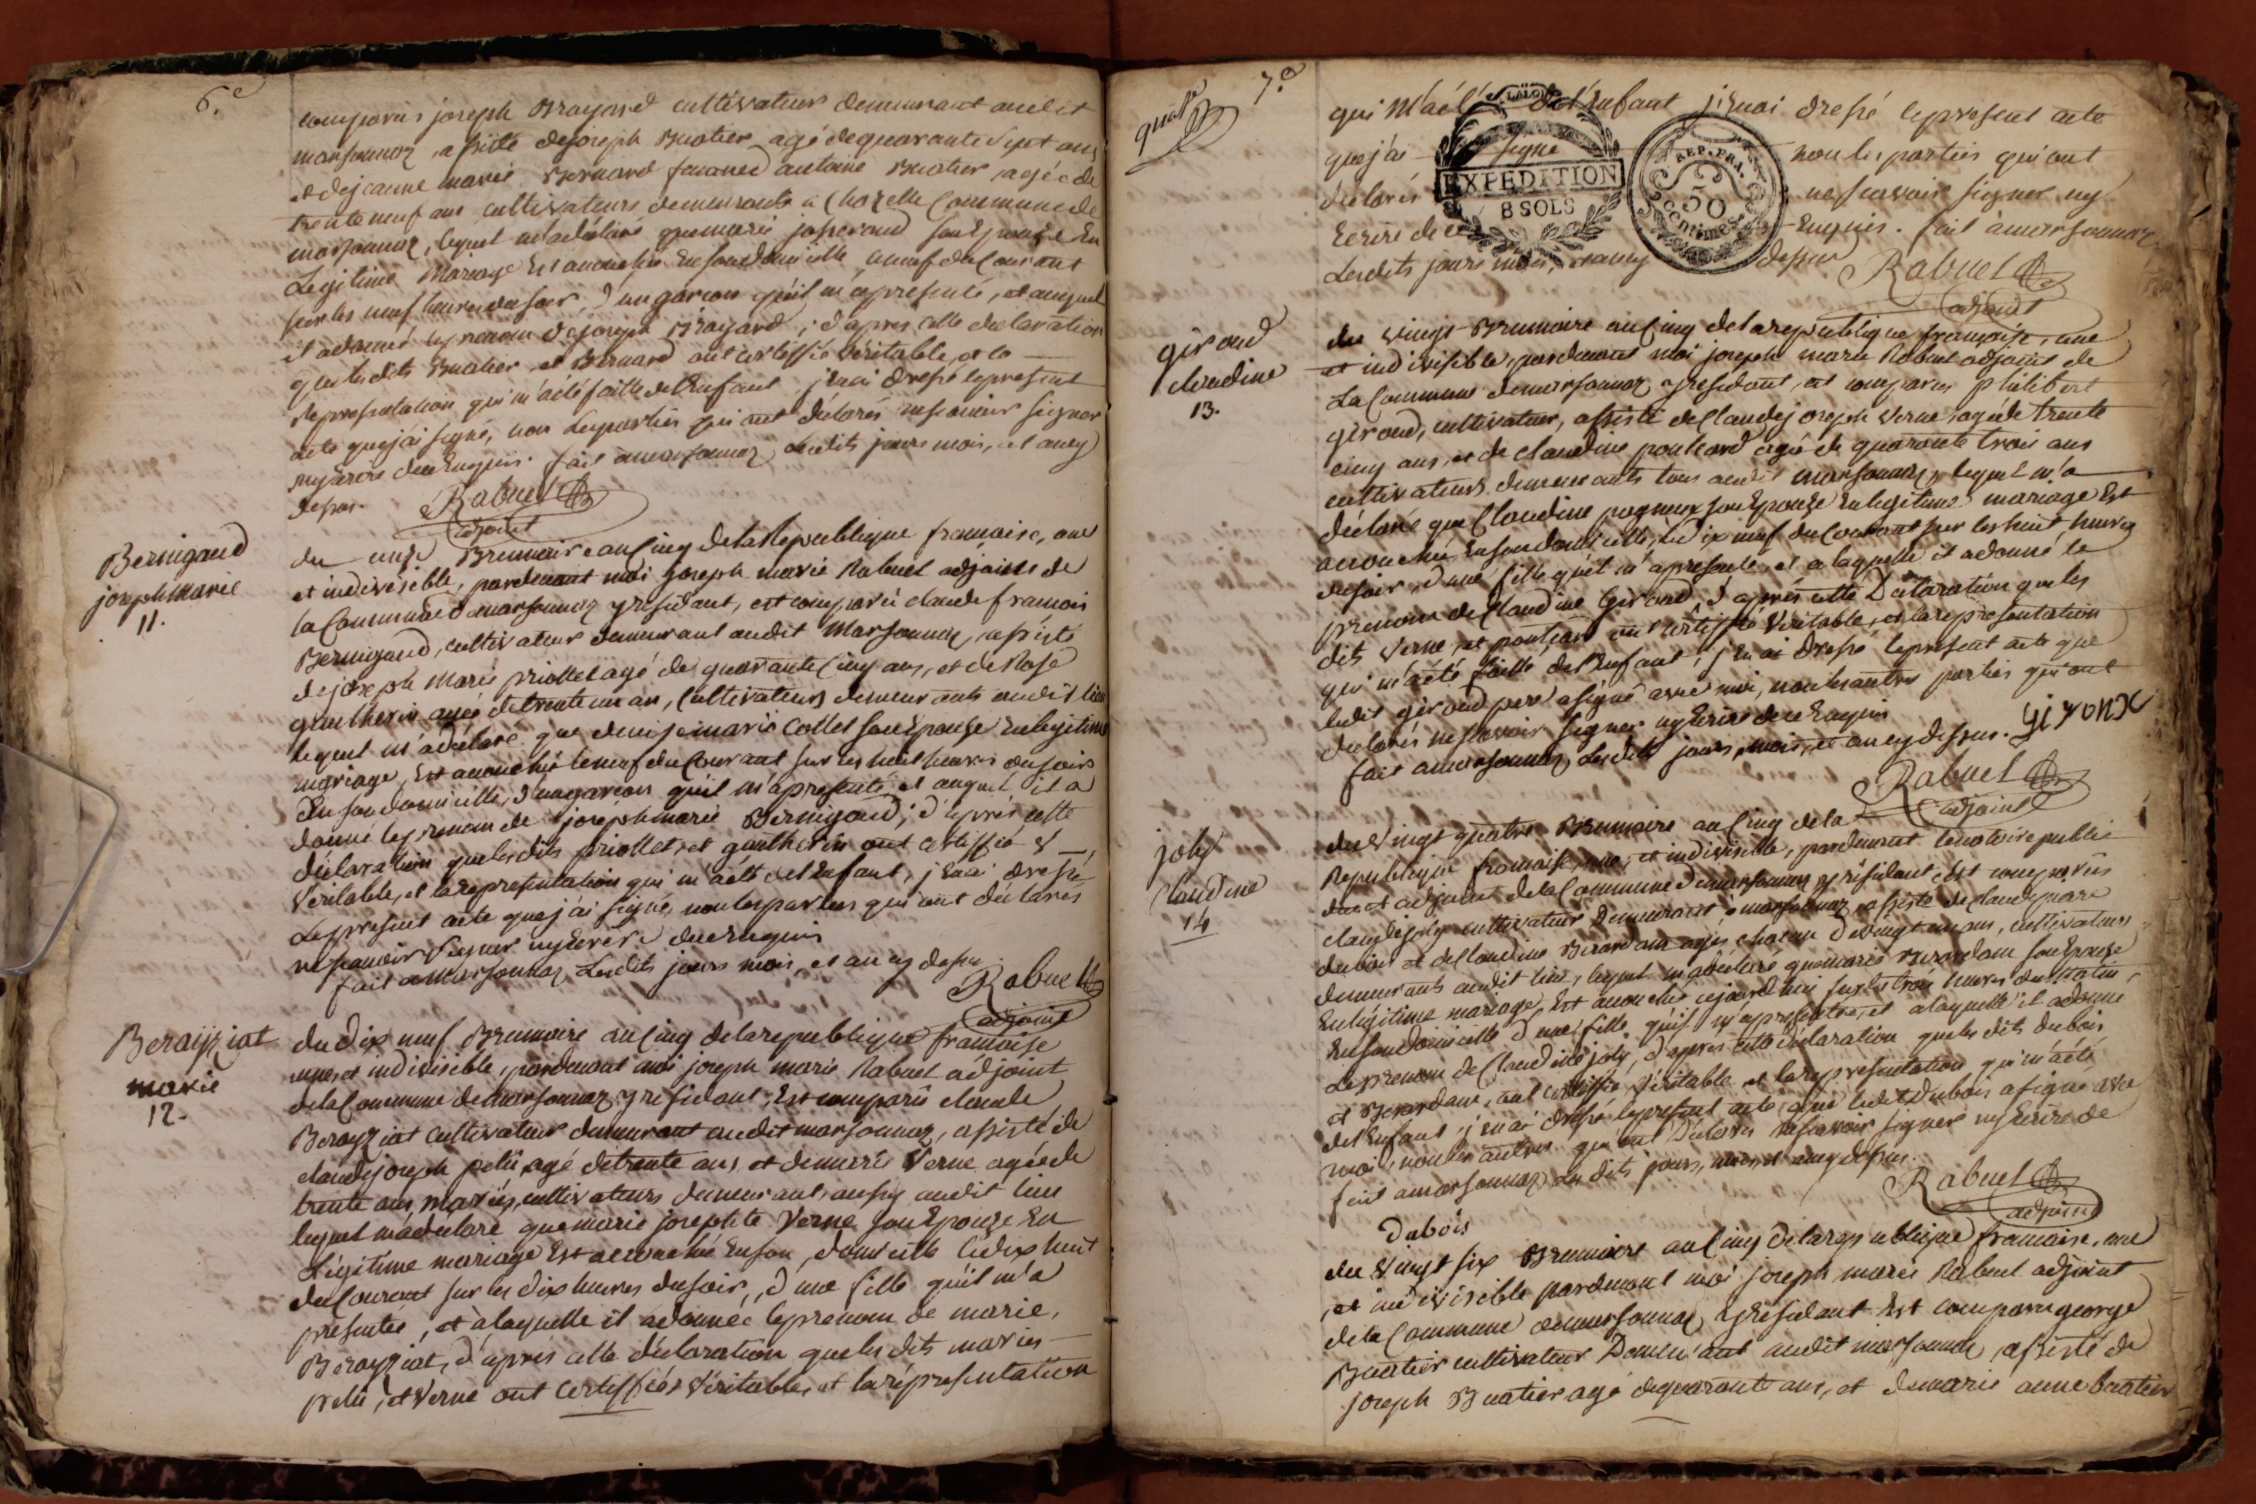 6.e
comparu joseph Brayard cultivateur demeurant audit
marsonnaz, assisté de joseph Buatier agé de quarante sept ans
et de jeanne marie Bernard femme d antoine Buatier agée de
trente neuf ans cultivateurs demeurants a Chazelle Commune de
marsonnaz, lequel m'a déclaré que marie josserand son Epouze En
Legitime Mariage Est accouchée En son domicille, le neuf du Courant
sur les neuf heures du soir, d'un garcon qu'il m'a présenté, et auquel
il a donné le prenom de joseph Brayard ; d'apres cette declaration
que les dits Buatier, et Bernard ont certiffié Véritable, et la
Représentation qui m'a été faitte de l'Enfant, j'Enai dressé le present
acte que j'ai signé, non les parties qui ont déclarés ne scavoir signer
ny Ecrire de ce Enquis. fait a marsonnaz les dits jours mois, et an cy
dessus.
Rabuel
adjoint
Bernigaud
joseph Marie
11.
du onze Brumaire an Cinq de la Republique francaise, une
et indivisible, pardevant moi joseph marie Rabuel adjoint de
la Commune de marsonnaz y residant, est comparu claude francois
Bernigaud, cultivateur demeurant audit Marsonnaz, assisté
de joseph Marie priollet agé de quarante Cinq ans, et de Rose
gautherin agée de trente un an, Cultivateurs demeurants audit lieu
lequel m'a déclaré que denise marie Collet son Epouze En legitime
mariage, Est accouchée le neuf du Courant sur les huit heures du soir
En son domicille, d'un garcon qu'il m'a présenté et auquel il a
donné le prenom de joseph marie Bernigaud ; d'après cette
déclaration que les dits priollet, et gautherin ont certiffié
Véritable, et la representation qui m'a été de l'Enfant, j'Enai dressé
Le présent acte que j'ai signé, non les parties qui ont déclarés
ne scavoir Signer ny Ecrire de ce Enquis
fait a Marsonnaz Les dits jours mois, et an cy dessus.
Rabuel
adjoint
Berayziat
marie
12.
du Dix neuf Brumaire an Cinq de la republique francaise
une, et indivisible, pardevant moi joseph marie Rabuel adjoint
de la Commune de marsonnaz y residant, Est comparu claude
Berayziat cultivateur demeurant audit marsonnaz, assisté de
claude joseph petit, agé de trente ans et de marie Verne agée de
trente ans, mariés, cultivateurs demeurant aussy audit lieu
lequel m'a declaré que marie josephte Verne son Epouze En
Légitime mariage Est accouchée En son domicille le dix huit
du Courant sur les dix heures du soir, d'une fille qu'il m'a
présentée, et a laquelle il a donnée le prenom de marie,
Berayziat, d'après cette déclaration que les dits mariés
petit, et Verne ont certiffiés Véritable, et la représentation
7.e
qui M'a été de l'Enfant j'Enai dressé le present acte
que j'ai signé non les parties qui ont
déclarés ne scavoir signer ny
Ecrire de ce Enquis. fait a marsonnaz
Les dits jours mois, et an cy dessus
Rabuel
adjoint
EXPEDITION
8 SOLS
REP. FRA.
50
centimes
giroud
claudine
13.
du vingt Brumaire an Cinq de la republique francaise, une
et indivisible, pardevant moi joseph marie Rabuel adjoint de
La Commune de marsonnaz y residant, est comparu philibert
giroud, cultivateur, assisté de Claude joseph Verne agé de trente
cinq ans, et de claudine pontcard agée de quarante trois ans
cultivateurs demeurants tous audit marsonnaz, lequel m'a
déclaré que Claudine pagneux son Epouze En legitime mariage Est
accouchée En son domicille, le dix neuf du Courant sur les huit heures
du soir, d'une fille qu'il m'a presenté, et a laquelle il a donné le
prenom de Claudine giroud, d'après cette Déclaration que les
dits Verne, et pontcard ont certiffié Véritable, et la representation
qui m'a été faitte de l'Enfant, j'En ai dressé le present acte que
ledit giroud pere a signé avec moi, non les autres parties qui ont
declarés ne scavoir signer ny Ecrire de ce Enquis
fait a marsonnaz les dits jours, mois, et an cy dessus. giroux
Rabuel
adjoint
joly
Claudine
14
du Vingt quatre Brumaire an Cinq de la
Republique francaise, une, et indivisible, pardevant le notaire public
et adjoint de la Commune de marsonnaz y residant, Est comparu
claude joly cultivateur demeurant a marsonnaz assisté de claude marie
dubois et de Claudine Berardan agés chacun de vingt un ans, cultivateurs
demeurants audit lieu, lequel m'a declaré que marie Berardan son Epouze
En légitime mariage, Est accouchée cejourd'hui sur les trois heures du Matin,
En son domicille d'une fille qu'il m'a presentée, et a laquelle il a donné
Le prenom de Claudine joly, d'apres cette déclaration que les dits dubois
et Berardan, ont certiffié Véritable et la representation qui m'a été
de l'Enfant j'Enai dressé le present acte que ledit Dubois a signé avec
moi, non les autres qui ont Déclarés ne scavoir signer ny Ecrire de
fait a marsonnaz les dits jours, mois et an cy dessus.
Rabuel
adjoint
Dubois
du Vingt six Brumaire an Cinq de la republique francaise, une
et indivisible pardevant moi joseph marie Rabuel adjoint
de la Commune de marsonnaz y residant Est comparu george
Buatier cultivateur Demeurant audit marsonnaz assisté de
joseph Buatier agé de quarante ans, et de marie anne buatier